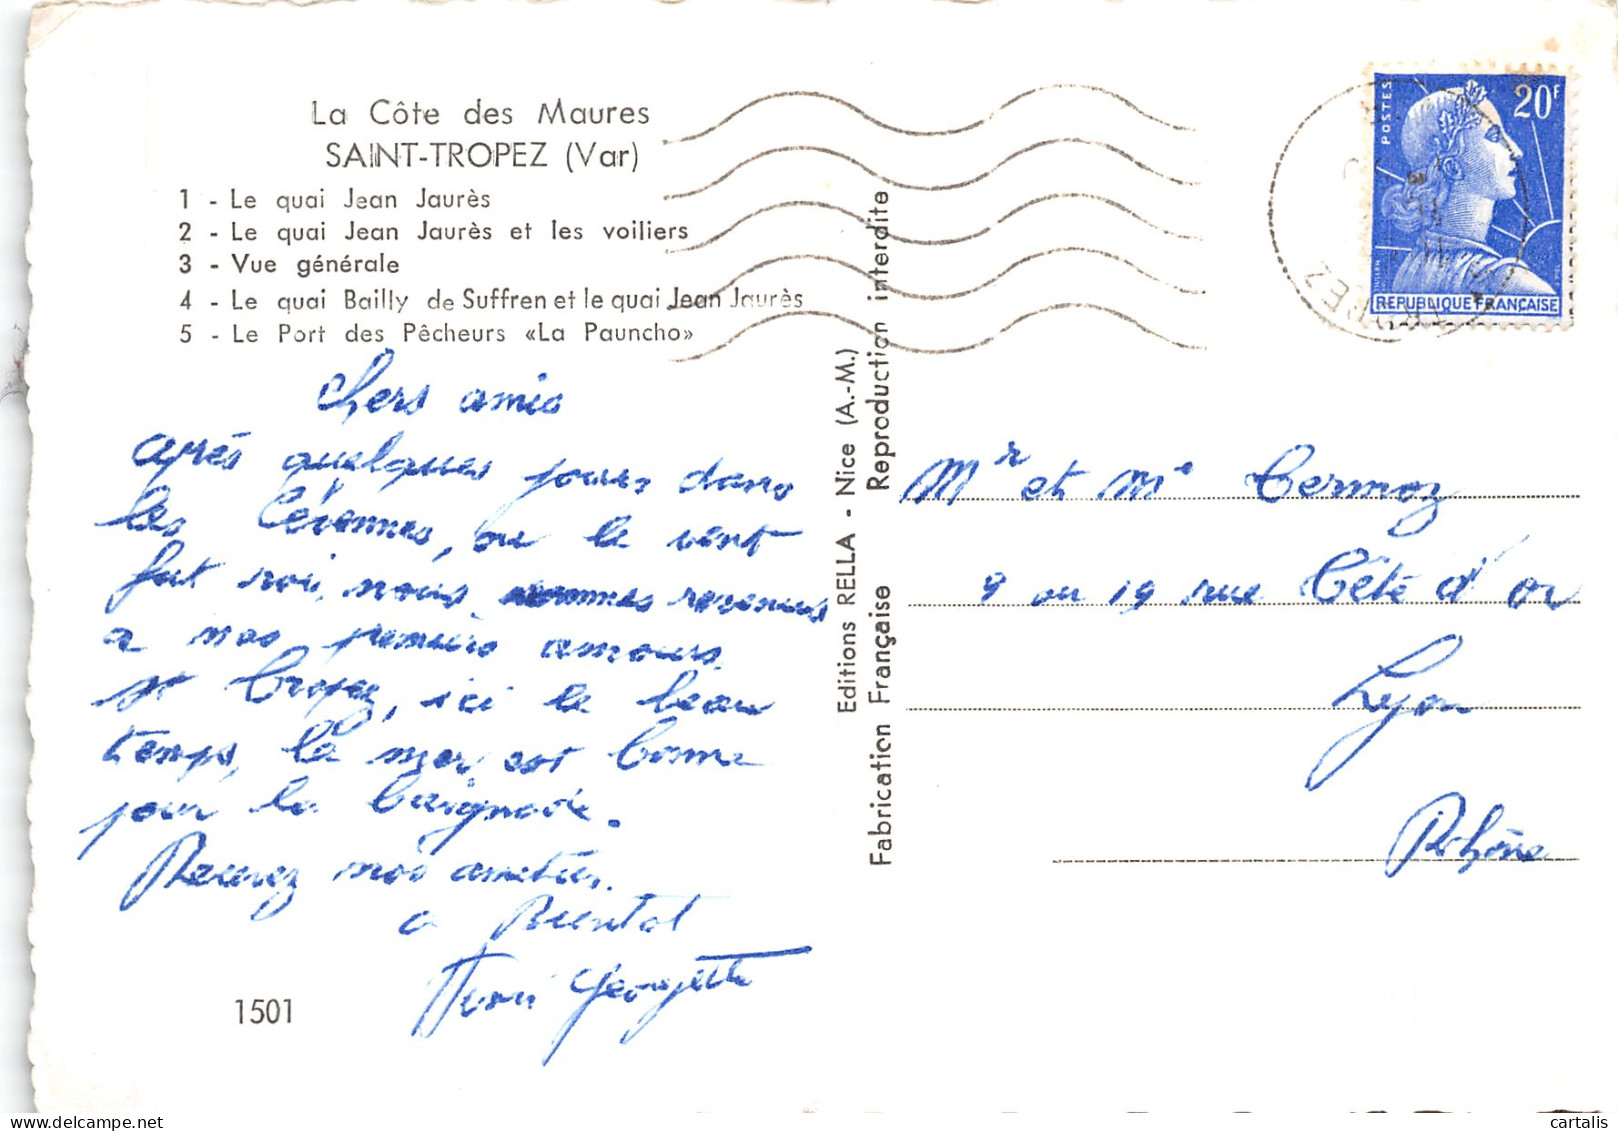 La Côte des Maures
SAINT-TROPEZ (Var)
1 - Le quai Jean Jaurès
2 - Le quai Jean Jaurès et les voiliers
3 - Vue générale
4 - Le quai Bailly de Suffren et le quai Jean Jaurès
5 - Le Port des Pêcheurs «La Pauncho»
Chers amis
après quelques jours dans
les Cévennes, ou le vent
fut roi, nous sommes revenus
a nos premiers amours
St Tropez, ici le beau
temps, la mer, est bonne
pour la baignade.
Recevez nos amitiés.
a Bientot
Henri Georgette
1501
Editions RELLA - Nice (A.-M.)
Fabrication Française Reproduction interdite
POSTES
20F
REPUBLIQUE FRANÇAISE
TROPEZ
Mr et Me Termoz
9 ou 19 rue Tête d'or
Lyon
Rhône
cartalis